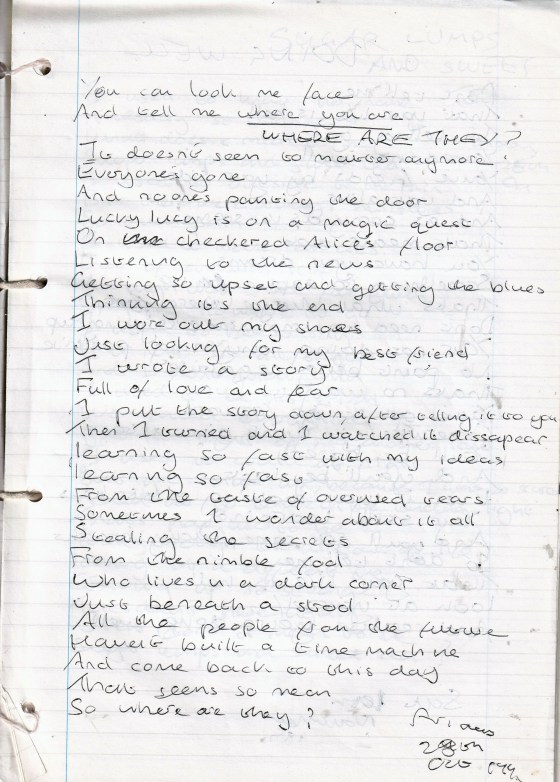 You can look me face
And tell me where you are
WHERE ARE THEY?
It doesn't seem to matter anymore
Everyone's gone
And noones painting the door
Lucky lucy is on a magic quest
On checkered Alice's floor
Listening to the news
Getting so upset and getting the blues
Thinking it's the end
I wore out my shoes
Just looking for my best friend
I wrote a story
Full of love and fear
I put the story down, after telling it to you
Then I turned and I watched it dissapear
learning so fast with my ideas
learning so fast
From the taste of overused tears
Sometimes I wonder about it all
Stealing the secrets
From the nimble fool
Who lives in a dark corner
Just beneath a stool
All the people from the future
Haven't built a time machine
And come back to this day
That seems so mean
So where are they?
28th
Oct